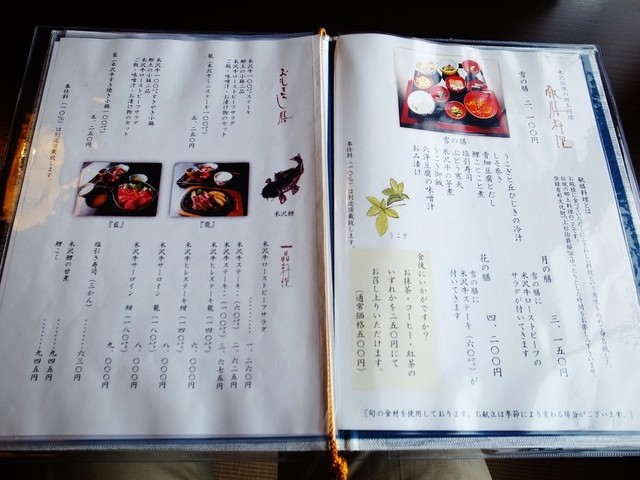 献膳料理
雪の膳 二、一〇〇円
雪の膳
うこぎと丘ひじきの冷汁
しそ巻き
青畑豆腐とだし
鯉ことこと煮
塩引寿司
ぶどう寒天
米沢牛の芋煮
うこぎ御飯
六浄豆腐の味噌汁
おみ漬け
奉仕料（一〇％）は別途頂戴致します。
月の膳 三、一五〇円
雪の膳に
米沢牛ローストビーフの
サラダが付いてきます
花の膳 四、二〇〇円
雪の膳に
米沢牛ステーキ（六〇ｇ）が
付いてきます
うこぎ
食後にいかがですか？
お抹茶・コーヒー・紅茶の
いずれかを二五〇円にて
お召し上りいただけます。
（通常価格五〇〇円）
［旬の食材を使用しております。お献立は季節により変わる場合がございます。］
おもてなし膳
龍（米沢牛ミニステーキ一〇〇ｇ） 五、二五〇円
米沢牛一〇〇ｇステーキ
郷土の小鉢二品
米沢牛ローストビーフサラダ
ご飯・味噌汁・お漬け物のセット
藍（米沢牛すき焼き小鍋一〇〇ｇ） 五、二五〇円
米沢牛一〇〇ｇすきやき小鍋
郷土の小鉢二品
米沢牛ローストビーフサラダ
ご飯・味噌汁・お漬け物のセット
奉仕料（一〇％）は別途頂戴致します。
米沢鯉
『龍』
『藍』
一品料理
米沢牛ローストビーフサラダ 一、二六〇円
米沢牛ステーキ（六〇ｇ） 二、六二五円
米沢牛ヒレステーキ龍（一四〇ｇ）
米沢牛ヒレステーキ紺（一四〇ｇ）
米沢牛サーロイン 龍（一八〇ｇ）
米沢牛サーロイン 紺（一八〇ｇ） 九、〇〇〇円
塩引き寿司（三かん） 六三〇円
米沢鯉の甘煮 九四五円
鯉こく 九四五円